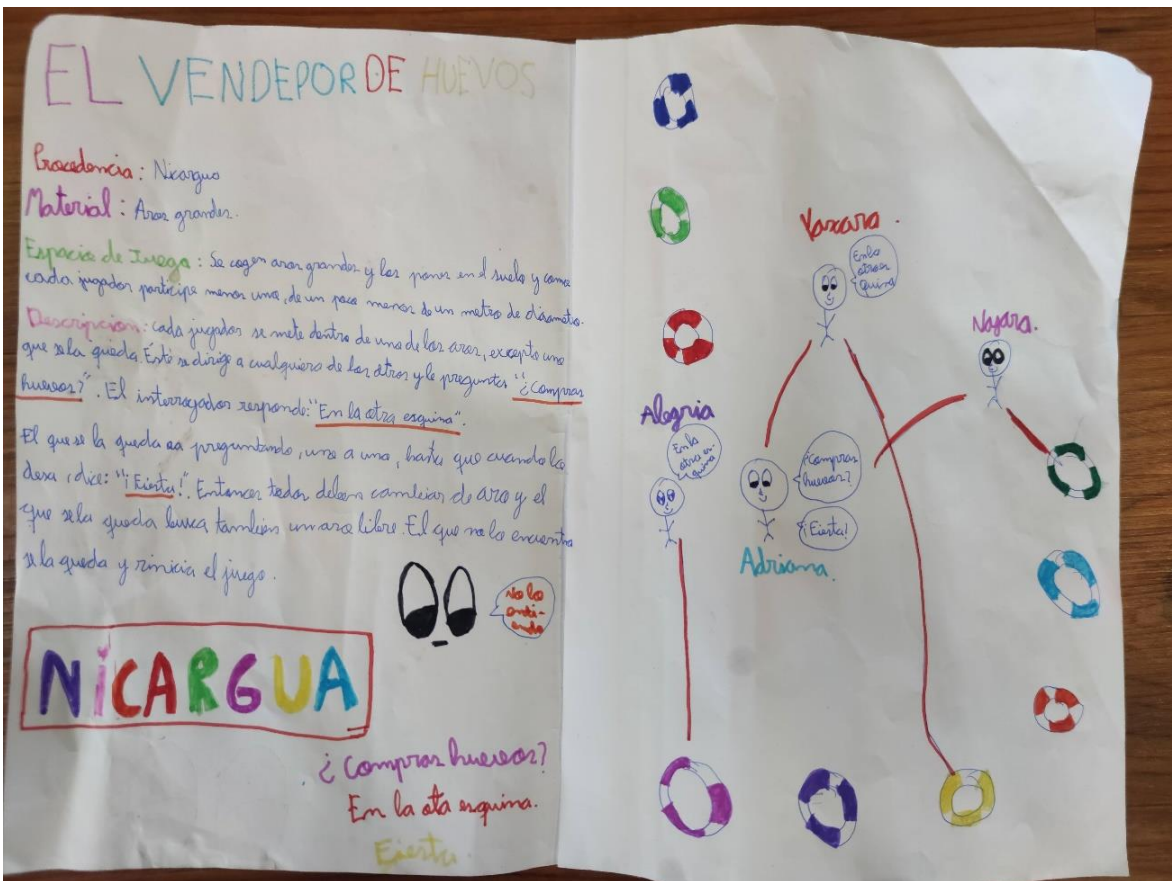 EL VENDEPOR DE HUEVOS
Procedencia: Nicargua
Material: Aros grandes.
Espacio de Juego: Se cogen aros grandes y los ponen en el suelo y como
cada jugador participe menos uno, de un poco menos de un metro de diametro.
Descripcion: cada jugador se mete dentro de uno de los aros, excepto uno
que se la queda. Éste se dirige a cualquiera de los otros y le pregunta "¿Compras
huevos?". El interrogador responde: "En la otra esquina".
El que se la queda va preguntando, uno a uno, hasta que cuando lo
desea, dice: "¡Eiesta!". Entonces todos deben cambiar de aro y el
que se la queda busca también un aro libre. El que no lo encuentra
se la queda y rinicia el juego.
No lo
enti-
endo
NiCARGUA
¿Compras huevos?
En la ota esquina.
Eiesta
Naiara.
Alegria
En la
otra es-
quina
En la
otra es
quina
¿Compras
huevos?
¡Eiesta!
Adriana.